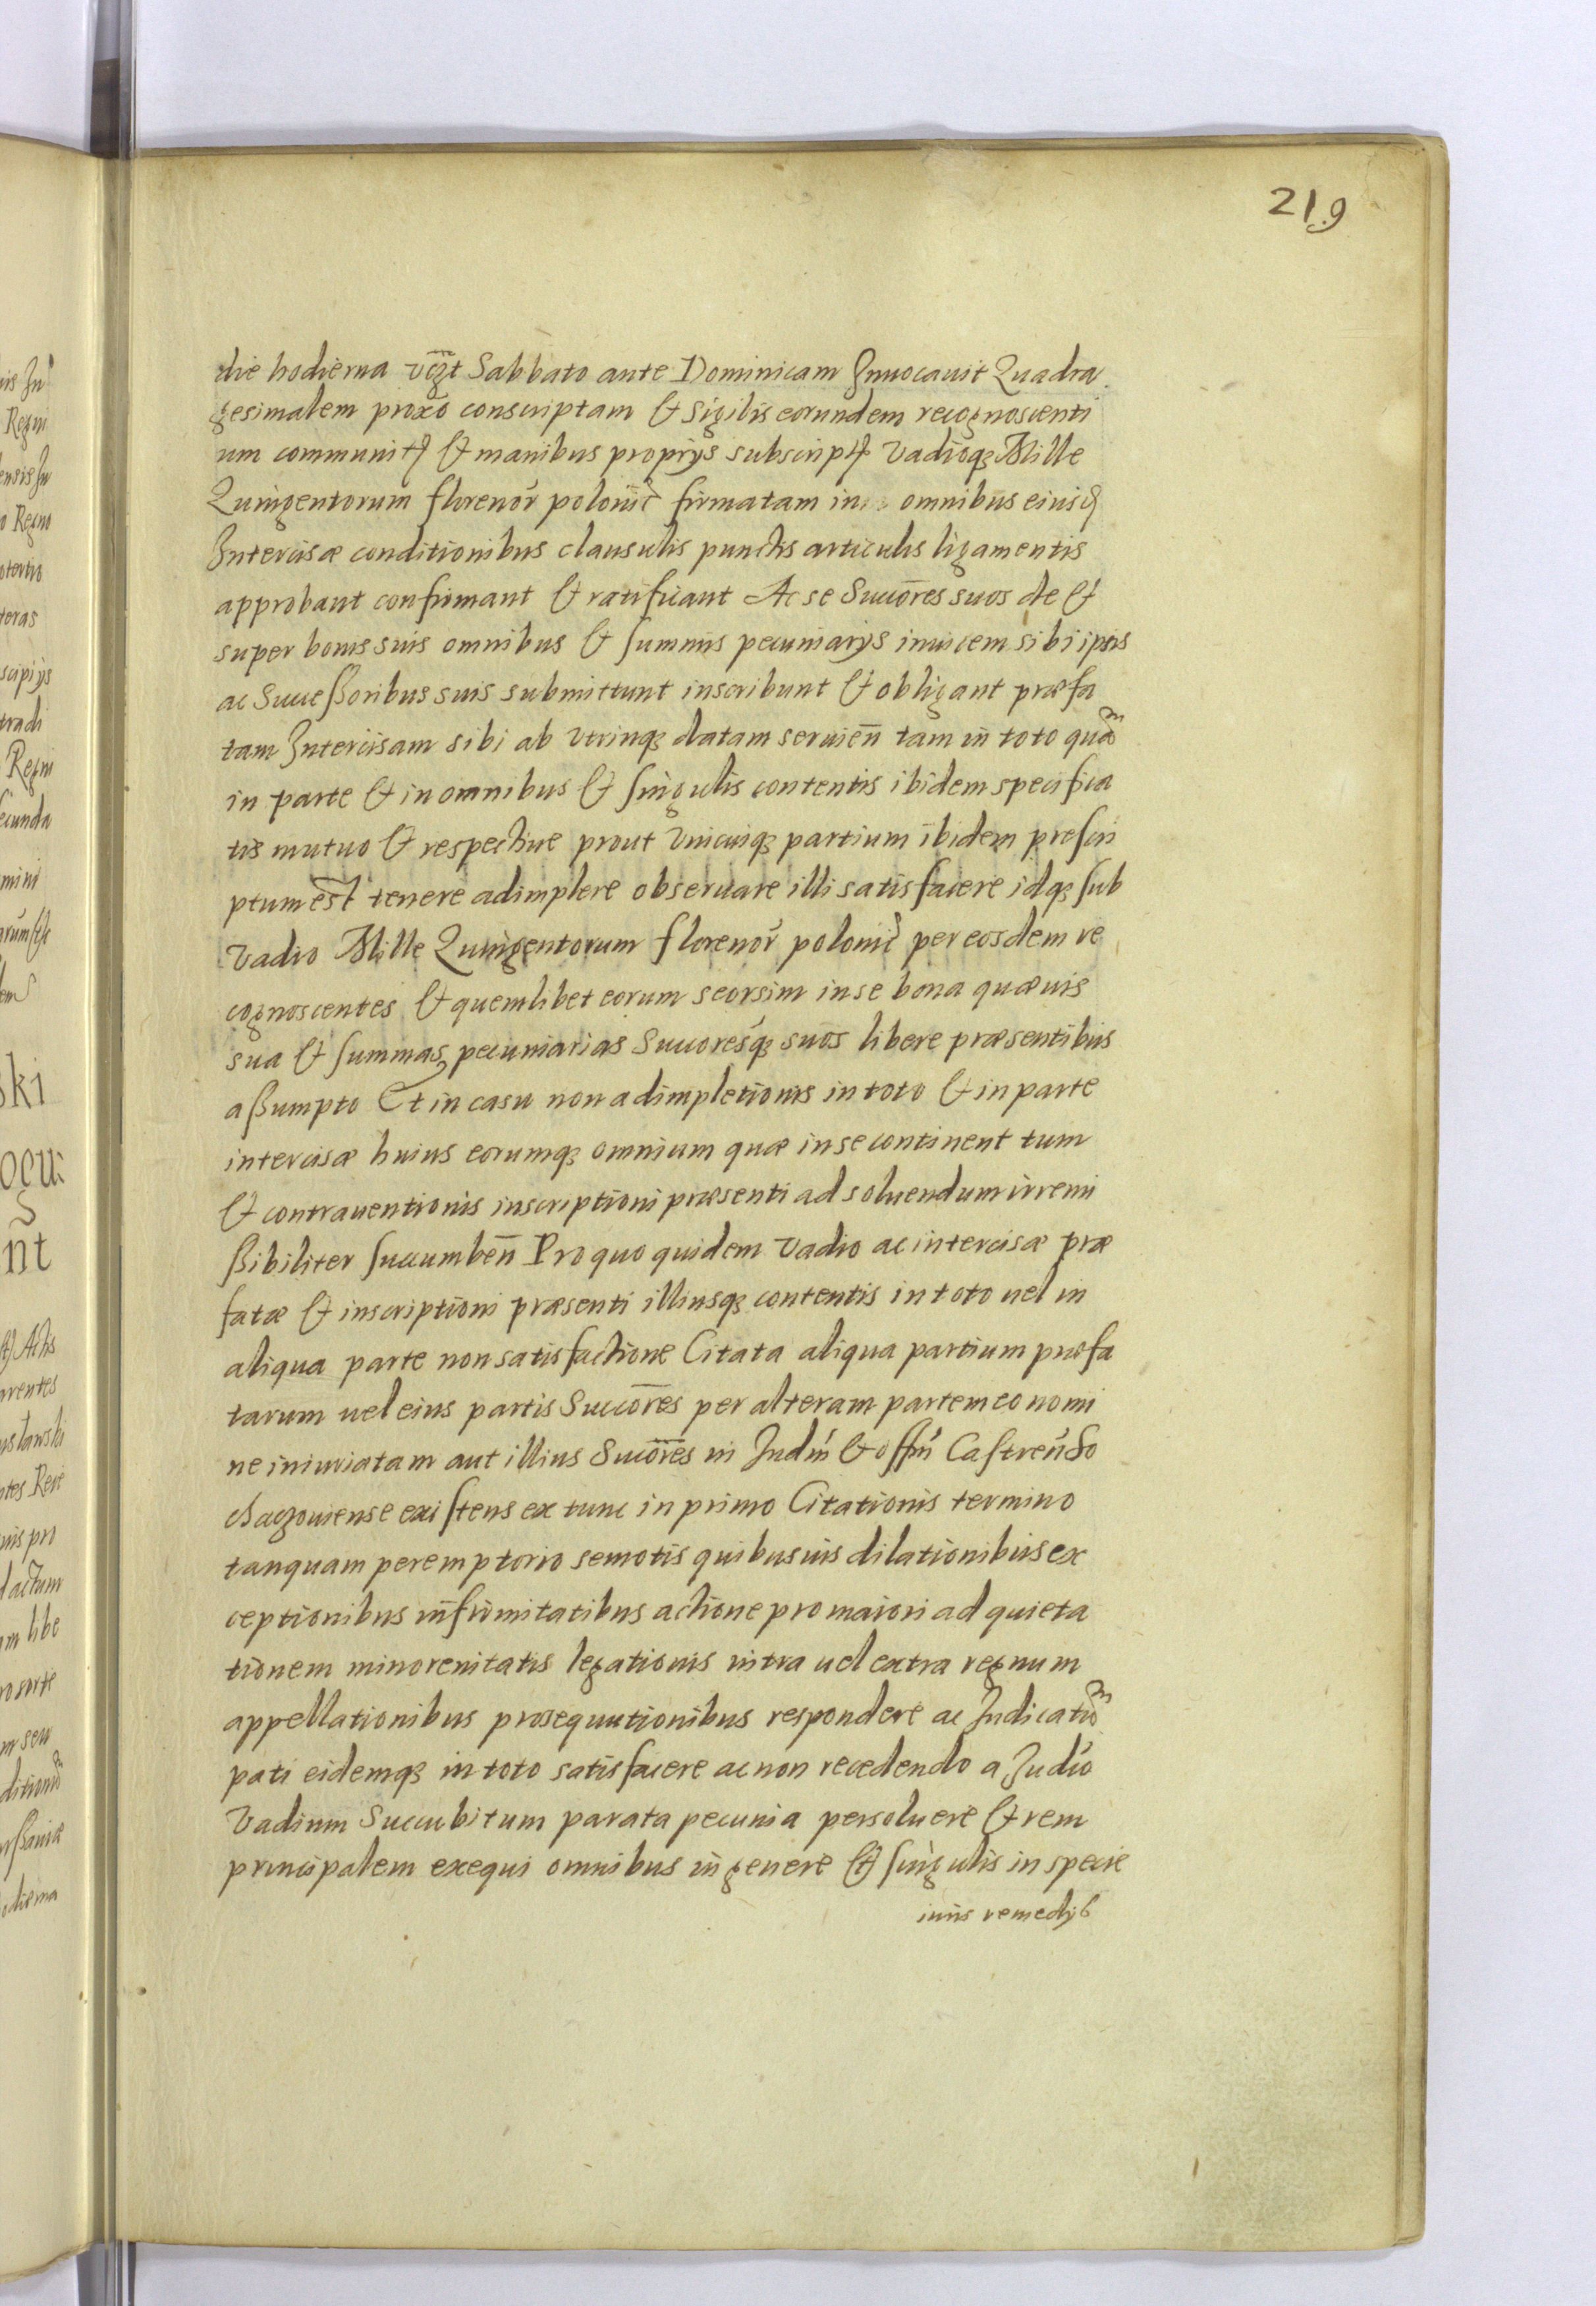 219
die hodierna vczt Sabbato ante Dominicam Inuocauit Quadra
gesimalem proxo conscriptam & sigilis eorundem recognoscenti
um communit & manibus proprijs subscript vadioq₃ Mille
Quingentorum florenor polonic firmatam in omnibus eiusd
Intercisæ conditionibus clausulis punctis articulis ligamentis
approbant confirmant & ratificant Ac se Succōres suos de &
super bonis suis omnibus & summis pecuniarijs inuicem sibi ipsis
ac Successoribus suis submittunt inscribunt & obligant præfa
tam Intercisam sibi ab vtrinq₃ datam seruien̄ tam in toto quam
in parte & in omnibus & singulis contentis ibidem specifica
tis mutuo & respectiue prout vnicuiq₃ partium ibidem prescri
ptum est tenere adimplere obseruare illi satisfacere idq₃ sub
vadio Mille Quingentorum florenor polonic per eosdem re
cognoscentes & quemlibet eorum seorsim in se bona quæuis
sua & summas pecuniarias Succoresq₃ suos libere præsentibus
assumpto Et in casu non adimpletionis in toto & in parte
intercisæ huius eorumq₃ omnium quæ in se continent tum
& contrauentionis inscriptioni præsenti ad soluendum irremi
ssibiliter succumben̄ Pro quo quidem vadio ac intercisæ præ
fatæ & inscriptioni præsenti illiusq₃ contentis in toto uel in
aliqua parte non satisfactione Citata aliqua partium præfa
tarum uel eius partis Succōres per alteram partem eo nomi
ne iniuriatam aut illius Succōres in Judm & offm Castren So
chaczouiense existens ex tunc in primo Citationis termino
tanquam peremptorio semotis quibusuis dilationibus ex
ceptionibus infirmitatibus actione pro maiori ad quieta
tionem minorenitatis legationis intra uel extra regnum
appellationibus prosequutionibus respondere ac Judicatum
pati eidemq₃ in toto satisfacere ac non recedendo a Judio
Vadium Succubitum parata pecunia persoluere & rem
principalem exequi omnibus in genere & singulis in specie
iuris remedijs